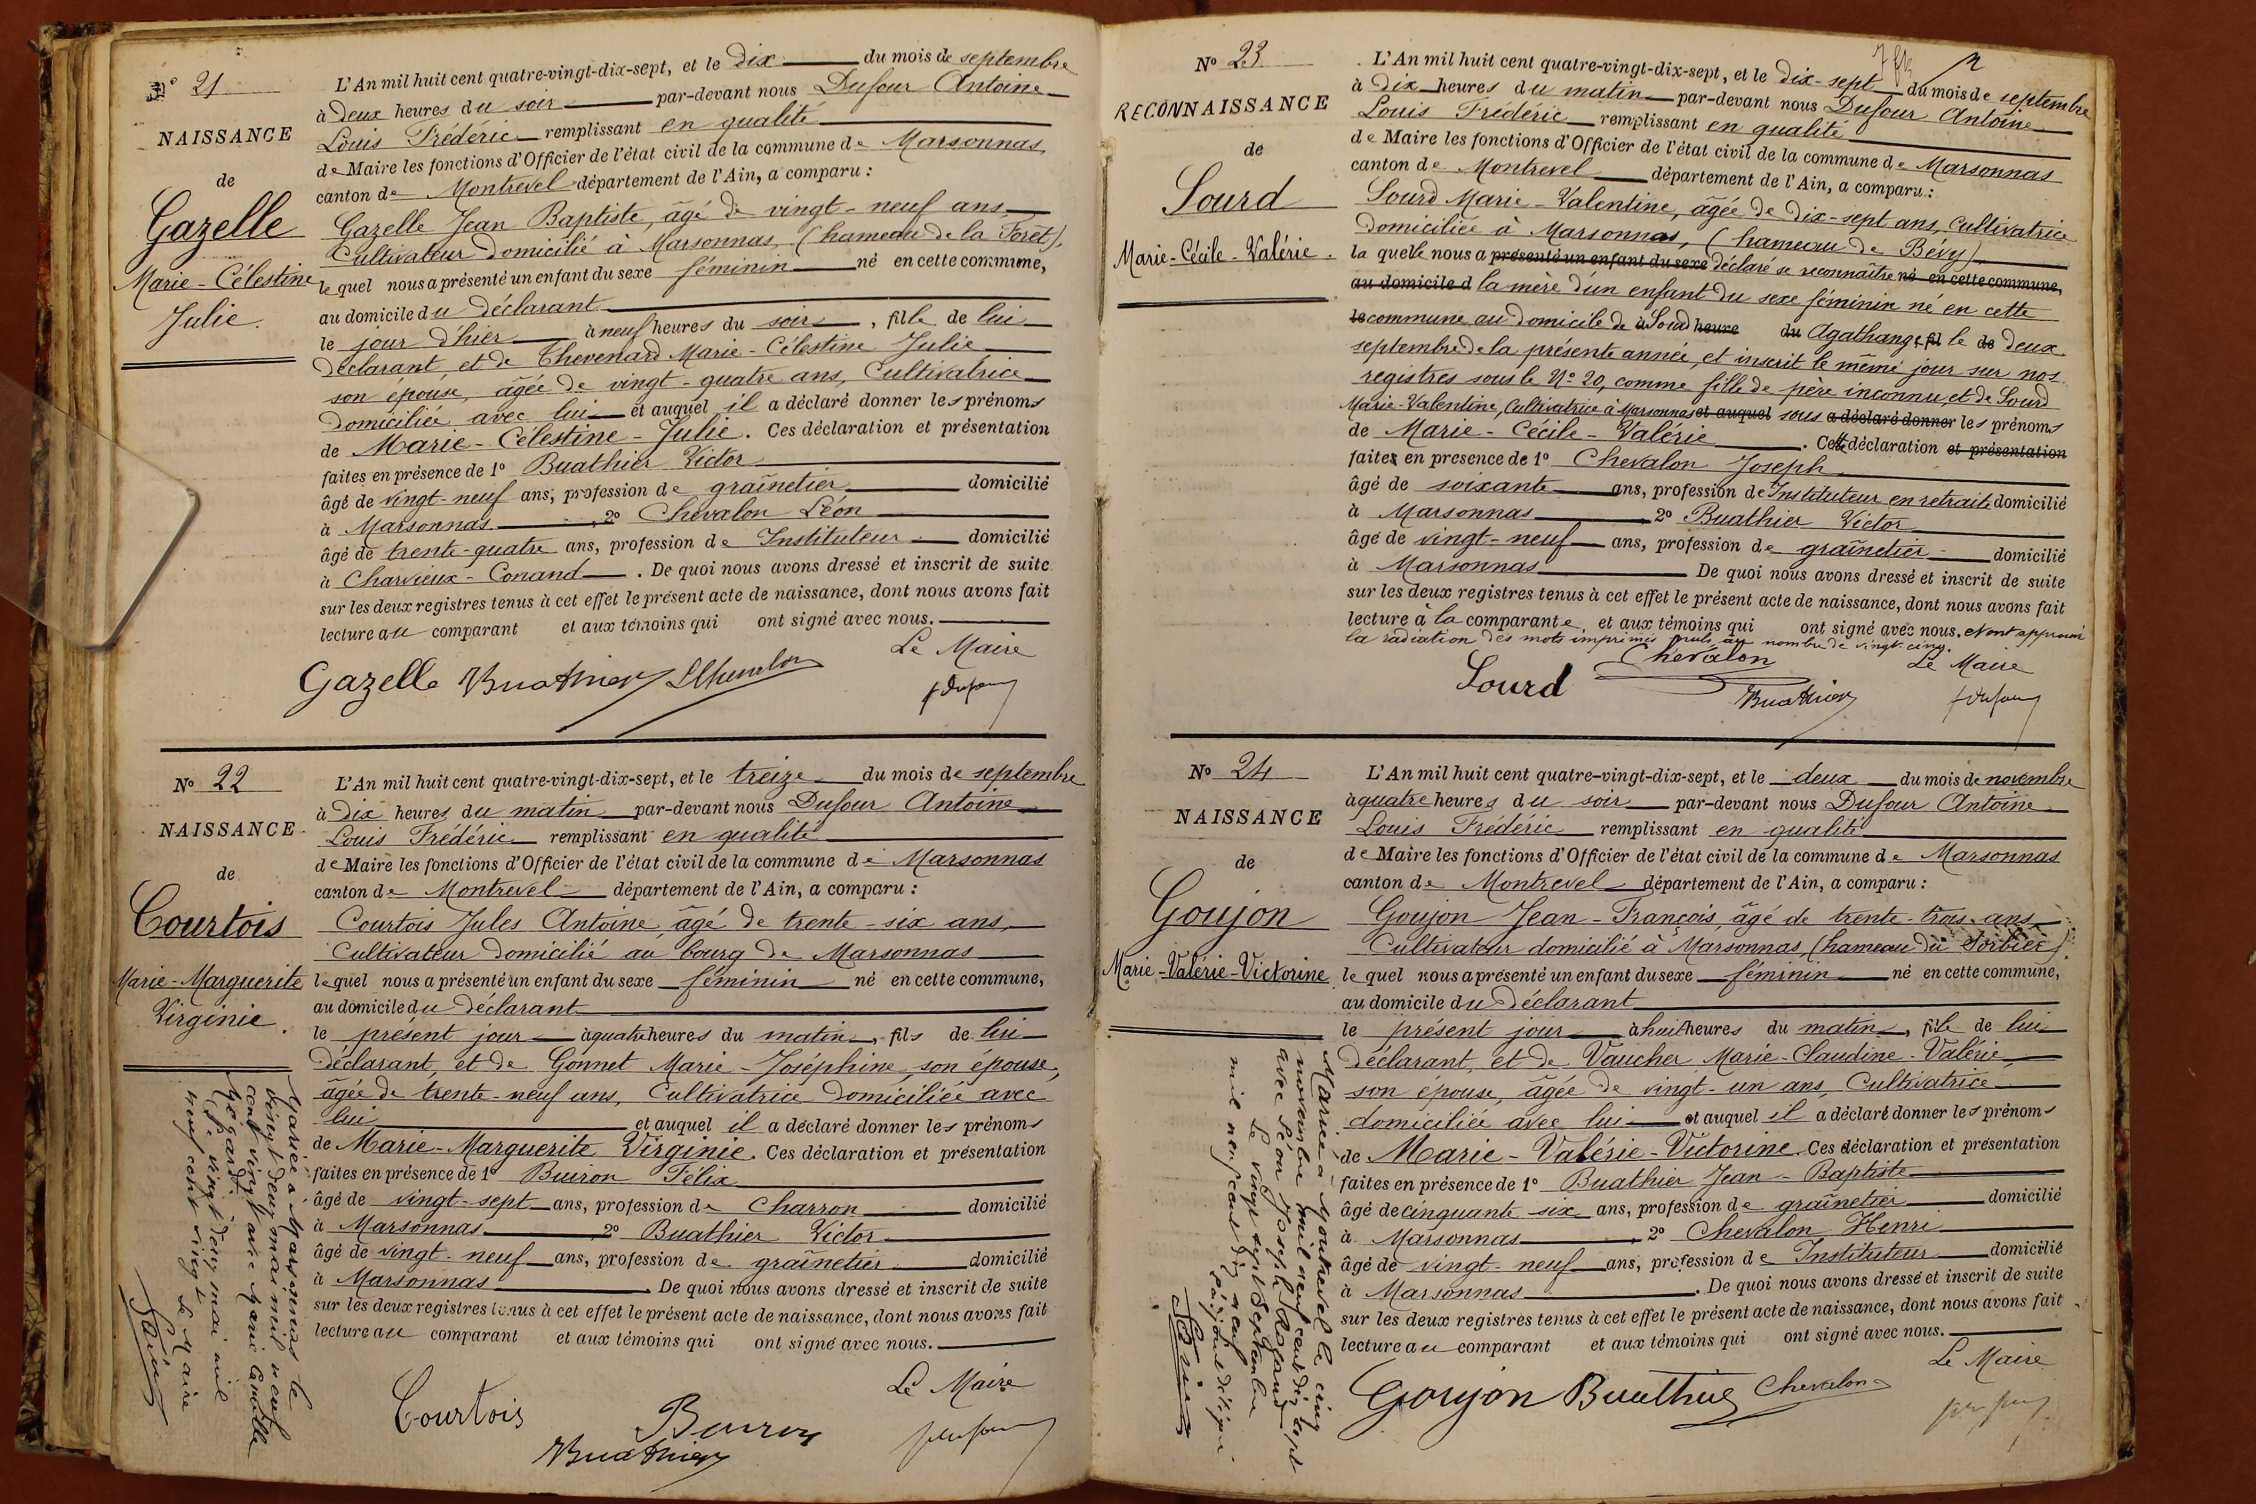 N° 21
NAISSANCE
de
Gazelle
Marie-Célestine
Julie.
L'An mil huit cent quatre-vingt-dix-sept, et le dix du mois de septembre
à deux heures du soir par-devant nous Dufour Antoine
Louis Frédéric remplissant en qualité
de Maire les fonctions d'Officier de l'état civil de la commune de Marsonnas
canton de Montrevel département de l'Ain, a comparu :
Gazelle Jean Baptiste, âgé de vingt-neuf ans,
Cultivateur domicilié à Marsonnas, (hameau de la Forêt),
lequel nous a présenté un enfant du sexe féminin né en cette commune,
au domicile du déclarant
le jour d'hier à neuf heures du soir, fille de lui
déclarant, et de Thevenard Marie-Célestine Julie
son épouse, âgée de vingt-quatre ans, Cultivatrice
domiciliée avec lui et auquel il a déclaré donner les prénoms
de Marie-Célestine-Julie. Ces déclaration et présentation
faites en présence de 1° Buathier Victor
âgé de vingt-neuf ans, profession de graînetier domicilié
à Marsonnas, 2° Chevalon Léon
âgé de trente-quatre ans, profession de Instituteur domicilié
à Charvieux-Conand. De quoi nous avons dressé et inscrit de suite
sur les deux registres tenus à cet effet le présent acte de naissance, dont nous avons fait
lecture au comparant et aux témoins qui ont signé avec nous.
Le Maire
Gazelle Buathier LChevalon
fDufour
N° 22
NAISSANCE
de
Courtois
Marie-Marguerite
Virginie.
L'An mil huit cent quatre-vingt-dix-sept, et le treize du mois de septembre
à dix heures du matin par-devant nous Dufour Antoine
Louis Frédéric remplissant en qualité
de Maire les fonctions d'Officier de l'état civil de la commune de Marsonnas
canton de Montrevel département de l'Ain, a comparu :
Courtois Jules Antoine, âgé de trente-six ans,
Cultivateur domicilié au bourg de Marsonnas
lequel nous a présenté un enfant du sexe féminin né en cette commune,
au domicile du déclarant
le présent jour à quatre heures du matin, fils de lui
déclarant, et de Gonnet Marie-Joséphine, son épouse,
âgée de trente-neuf ans, Cultivatrice domiciliée avec
lui et auquel il a déclaré donner les prénoms
de Marie-Marguerite Virginie. Ces déclaration et présentation
faites en présence de 1° Buiron Félix
âgé de vingt-sept ans, profession de Charron domicilié
à Marsonnas 2° Buathier Victor
âgé de vingt-neuf ans, profession de graînetier domicilié
à Marsonnas. De quoi nous avons dressé et inscrit de suite
sur les deux registres tenus à cet effet le présent acte de naissance, dont nous avons fait
lecture au comparant et aux témoins qui ont signé avec nous.
Le Maire
Courtois Buiron
Buathier
fDufour
Mariée à Marsonnas le
vingt deux mai mil neuf
cent vingt avec Marie Camille
Le vingt deux mai mil
neuf cent vingt Le Maire
N° 23
RECONNAISSANCE
de
Sourd
Marie-Cécile-Valérie.
L'An mil huit cent quatre-vingt-dix-sept, et le dix-sept du mois de septembre
à dix heures du matin par-devant nous Dufour Antoine
Louis Frédéric remplissant en qualité
de Maire les fonctions d'Officier de l'état civil de la commune de Marsonnas
canton de Montrevel département de l'Ain, a comparu :
Sourd Marie-Valentine, âgée de dix-sept ans, Cultivatrice
domiciliée à Marsonnas, (hameau de Bévy)
la quelle nous a présenté un enfant du sexe déclaré se reconnaître né en cette commune,
au domicile d la mère d'un enfant du sexe féminin né en cette
le commune au domicile de à Sourd heure du Agathange fil le de deux
septembre de la présente année, et inscrit le même jour sur nos
registres sous le N° 20, comme fille de père inconnu, et de Sourd
Marie-Valentine, Cultivatrice à Marsonnas et auquel sous a déclaré donner les prénoms
de Marie-Cécile-Valérie. Cette déclaration et présentation
faites en presence de 1° Chevalon Joseph
âgé de soixante ans, profession de Instituteur en retraite domicilié
à Marsonnas, 2° Buathier Victor
âgé de vingt-neuf ans, profession de graînetier domicilié
à Marsonnas De quoi nous avons dressé et inscrit de suite
sur les deux registres tenus à cet effet le présent acte de naissance, dont nous avons fait
lecture à la comparante et aux témoins qui ont signé avec nous. et ont approuvé
la radiation des mots imprimés nuls au nombre de vingt-cinq.
Le Maire
Sourd Chevalon
Buathier
fDufour
N° 24
NAISSANCE
de
Goujon
Marie-Valérie-Victorine
L'An mil huit cent quatre-vingt-dix-sept, et le deux du mois de novembre
à quatre heures du soir par-devant nous Dufour Antoine
Louis Frédéric remplissant en qualité
de Maire les fonctions d'Officier de l'état civil de la commune de Marsonnas
canton de Montrevel département de l'Ain, a comparu :
Goujon Jean-François, âgé de trente-trois ans
Cultivateur domicilié à Marsonnas, (hameau du Sorbier).
lequel nous a présenté un enfant du sexe féminin né en cette commune,
au domicile du déclarant
le présent jour à huit heures du matin, fille de lui
déclarant, et de Vaucher Marie-Claudine-Valérie,
son épouse, âgée de vingt-un ans, Cultivatrice
domiciliée avec lui et auquel il a déclaré donner les prénoms
de Marie-Valérie-Victorine. Ces déclaration et présentation
faites en présence de 1° Buathier Jean-Baptiste
âgé de cinquante six ans, profession de graînetier domicilié
à Marsonnas, 2° Chevalon Henri
âgé de vingt-neuf ans, profession de Instituteur domicilié
à Marsonnas. De quoi nous avons dressé et inscrit de suite
sur les deux registres tenus à cet effet le présent acte de naissance, dont nous avons fait
lecture au comparant et aux témoins qui ont signé avec nous.
Le Maire
Goujon Buathier Chevalon
Mariée à Montrevel le cinq
novembre mil neuf cent dix sept
avec Léon Joseph
Le vingt sept Septembre
mil neuf cent dix neuf